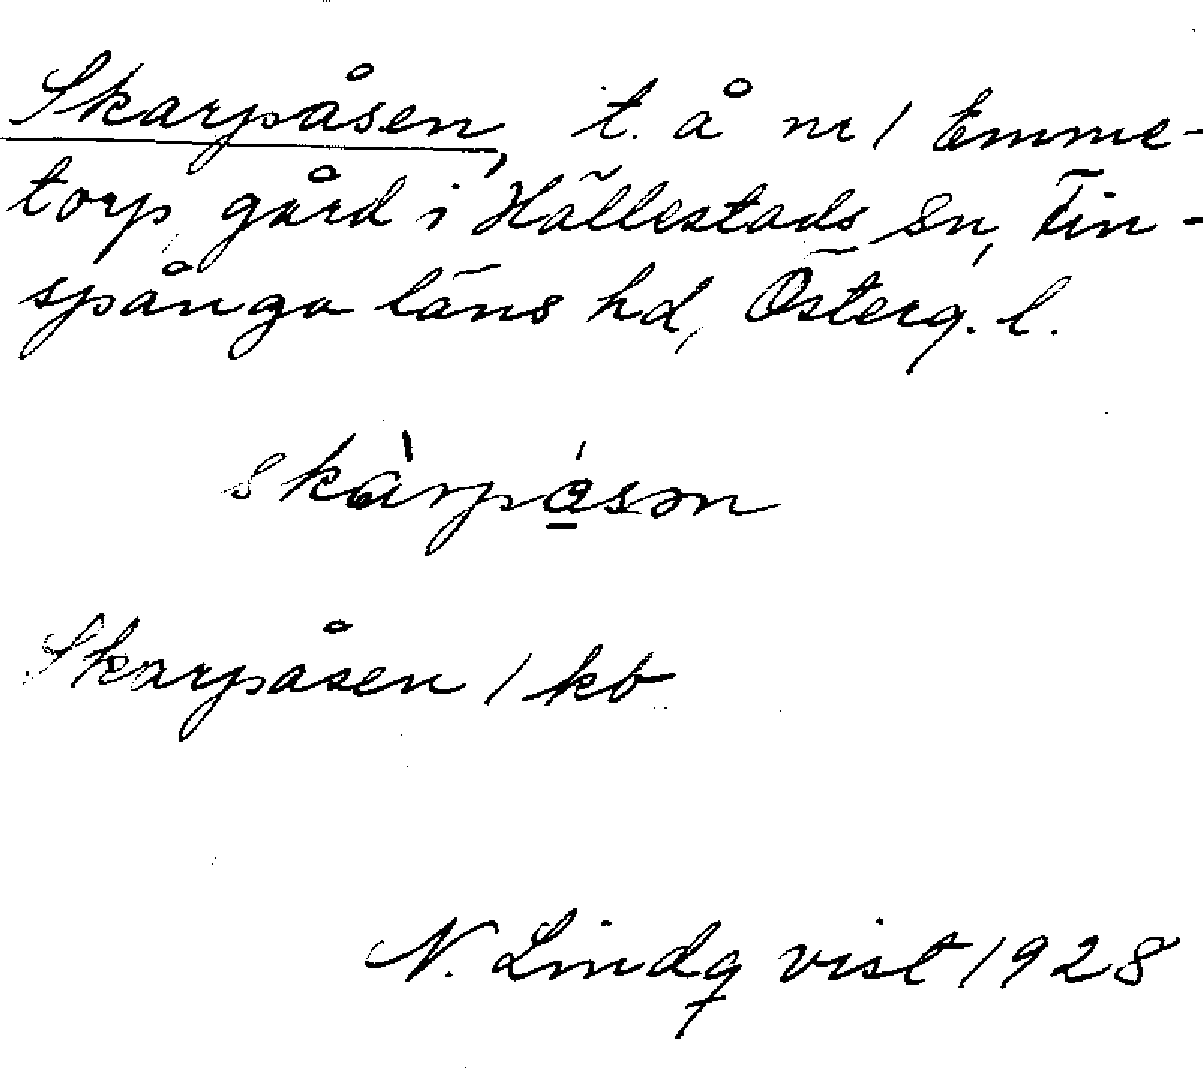 Skarpåsen, t. å nr 1 Emme-
torp, gård i Hällestads sn, Fin-
spånga läns hd, Österg. l.
skàrpåsən
Skarpåsen / kb
N. Lindqvist 1928